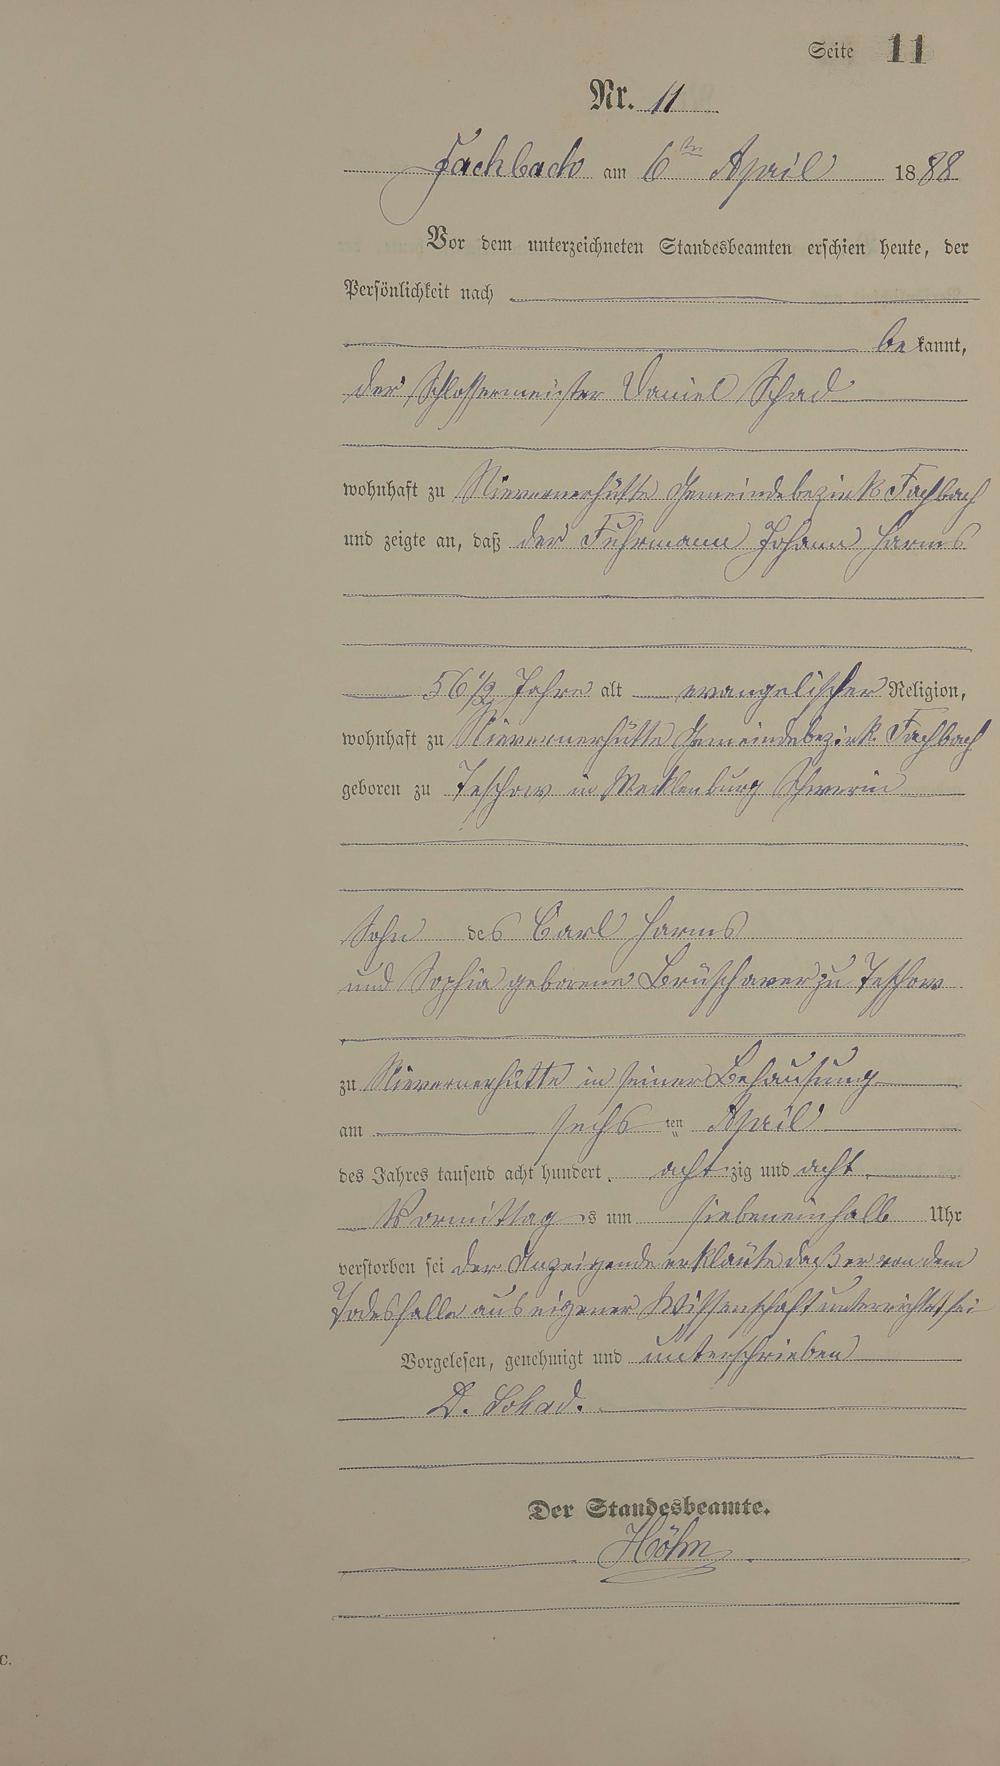 Seite 11
Nr. 11
Fachbach am 6ten April 1888
Vor dem unterzeichneten Standesbeamten erschien heute, der
Persönlichkeit nach
bekannt,
der Schlossermeister Daniel Schad
wohnhaft zu Nievernerhütte Gemeindebezirk Fachbach
und zeigte an, daß der Fuhrmann Johann Harms
56 1/2 Jahre alt evangelischer Religion,
wohnhaft zu Nievernerhütte Gemeindebezirk Fachbach
geboren zu Teschow in Mecklenburg Schwerin
Sohn des Carl Harms
und Sophia geborene Brüschaver zu Teschow
zu Nievernerhütte in seiner Behausung
am sechsten April
des Jahres tausend acht hundert achtzig und acht
Vormittags um siebeneinhalb Uhr
verstorben sei der Anzeigende erklärte daß er von dem
Todesfalle aus eigener Wissenschaft unterrichtet sei
Vorgelesen, genehmigt und unterschrieben
D. Schad.
Der Standesbeamte.
Höhn
C.